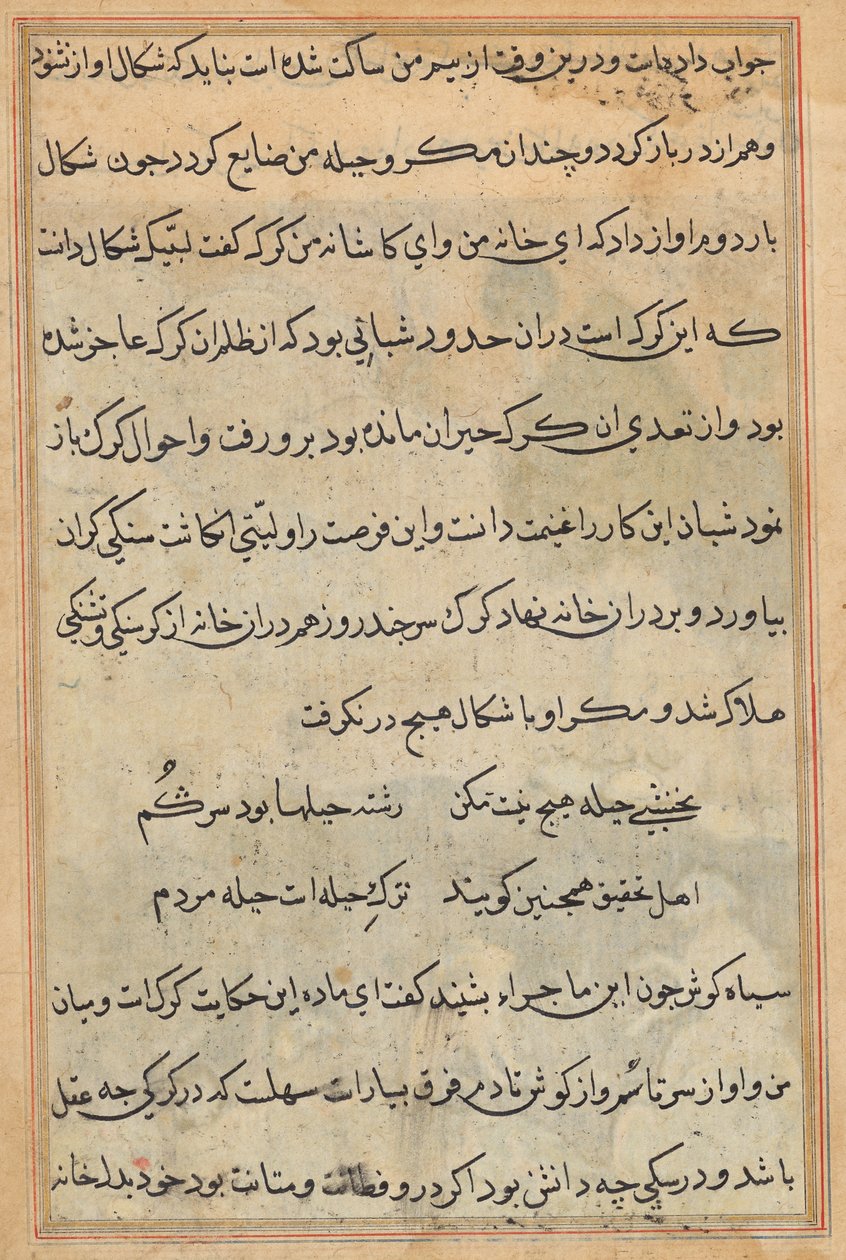 جواب داده است و درین وقت از بیم من ساکت شده است بناید که شکال اواز نشنود
و هم از در باز کردد و چندان مکر و حیله من ضایع کردد جون شکال
بار دوم اواز داد که ای خانه من وای کاشانه من کرک کفت لبّیک شکال دانست
که این کرک است دران حدود شبانی بود که از ظلم ان کرک عاجز شده
بود و از تعدی ان کرک حیران مانده بود برو رفت و احوال کرک باز
نمود شبان این کار را غنیمت دانست و این فرصت را ولیّتی انکاشت سنکی کران
بیاورد و بر در ان خانه نهاد کرک سر جند روز هم دران خانه از کرسنکی و تشنکی
هلاک شد و مکر او با شکال هیچ در نکرفت
نخشبی حیله هیج نیست مکن رشته حیلها بود سر کُم
اهل تحقیق همجنین کویند ترکِ حیله است حیله مردم
سیاه کوش جون این ماجراء بشنید کفت ای ماده این حکایت کرک است و میان
من و او از سر تا سُم و از کوش تا دم فرق بسیار است سهلست که در کرکی جه عقل
باشد و در سکی چه دانش بود اکر درو فطانت و متانت بود خود بدر خانه